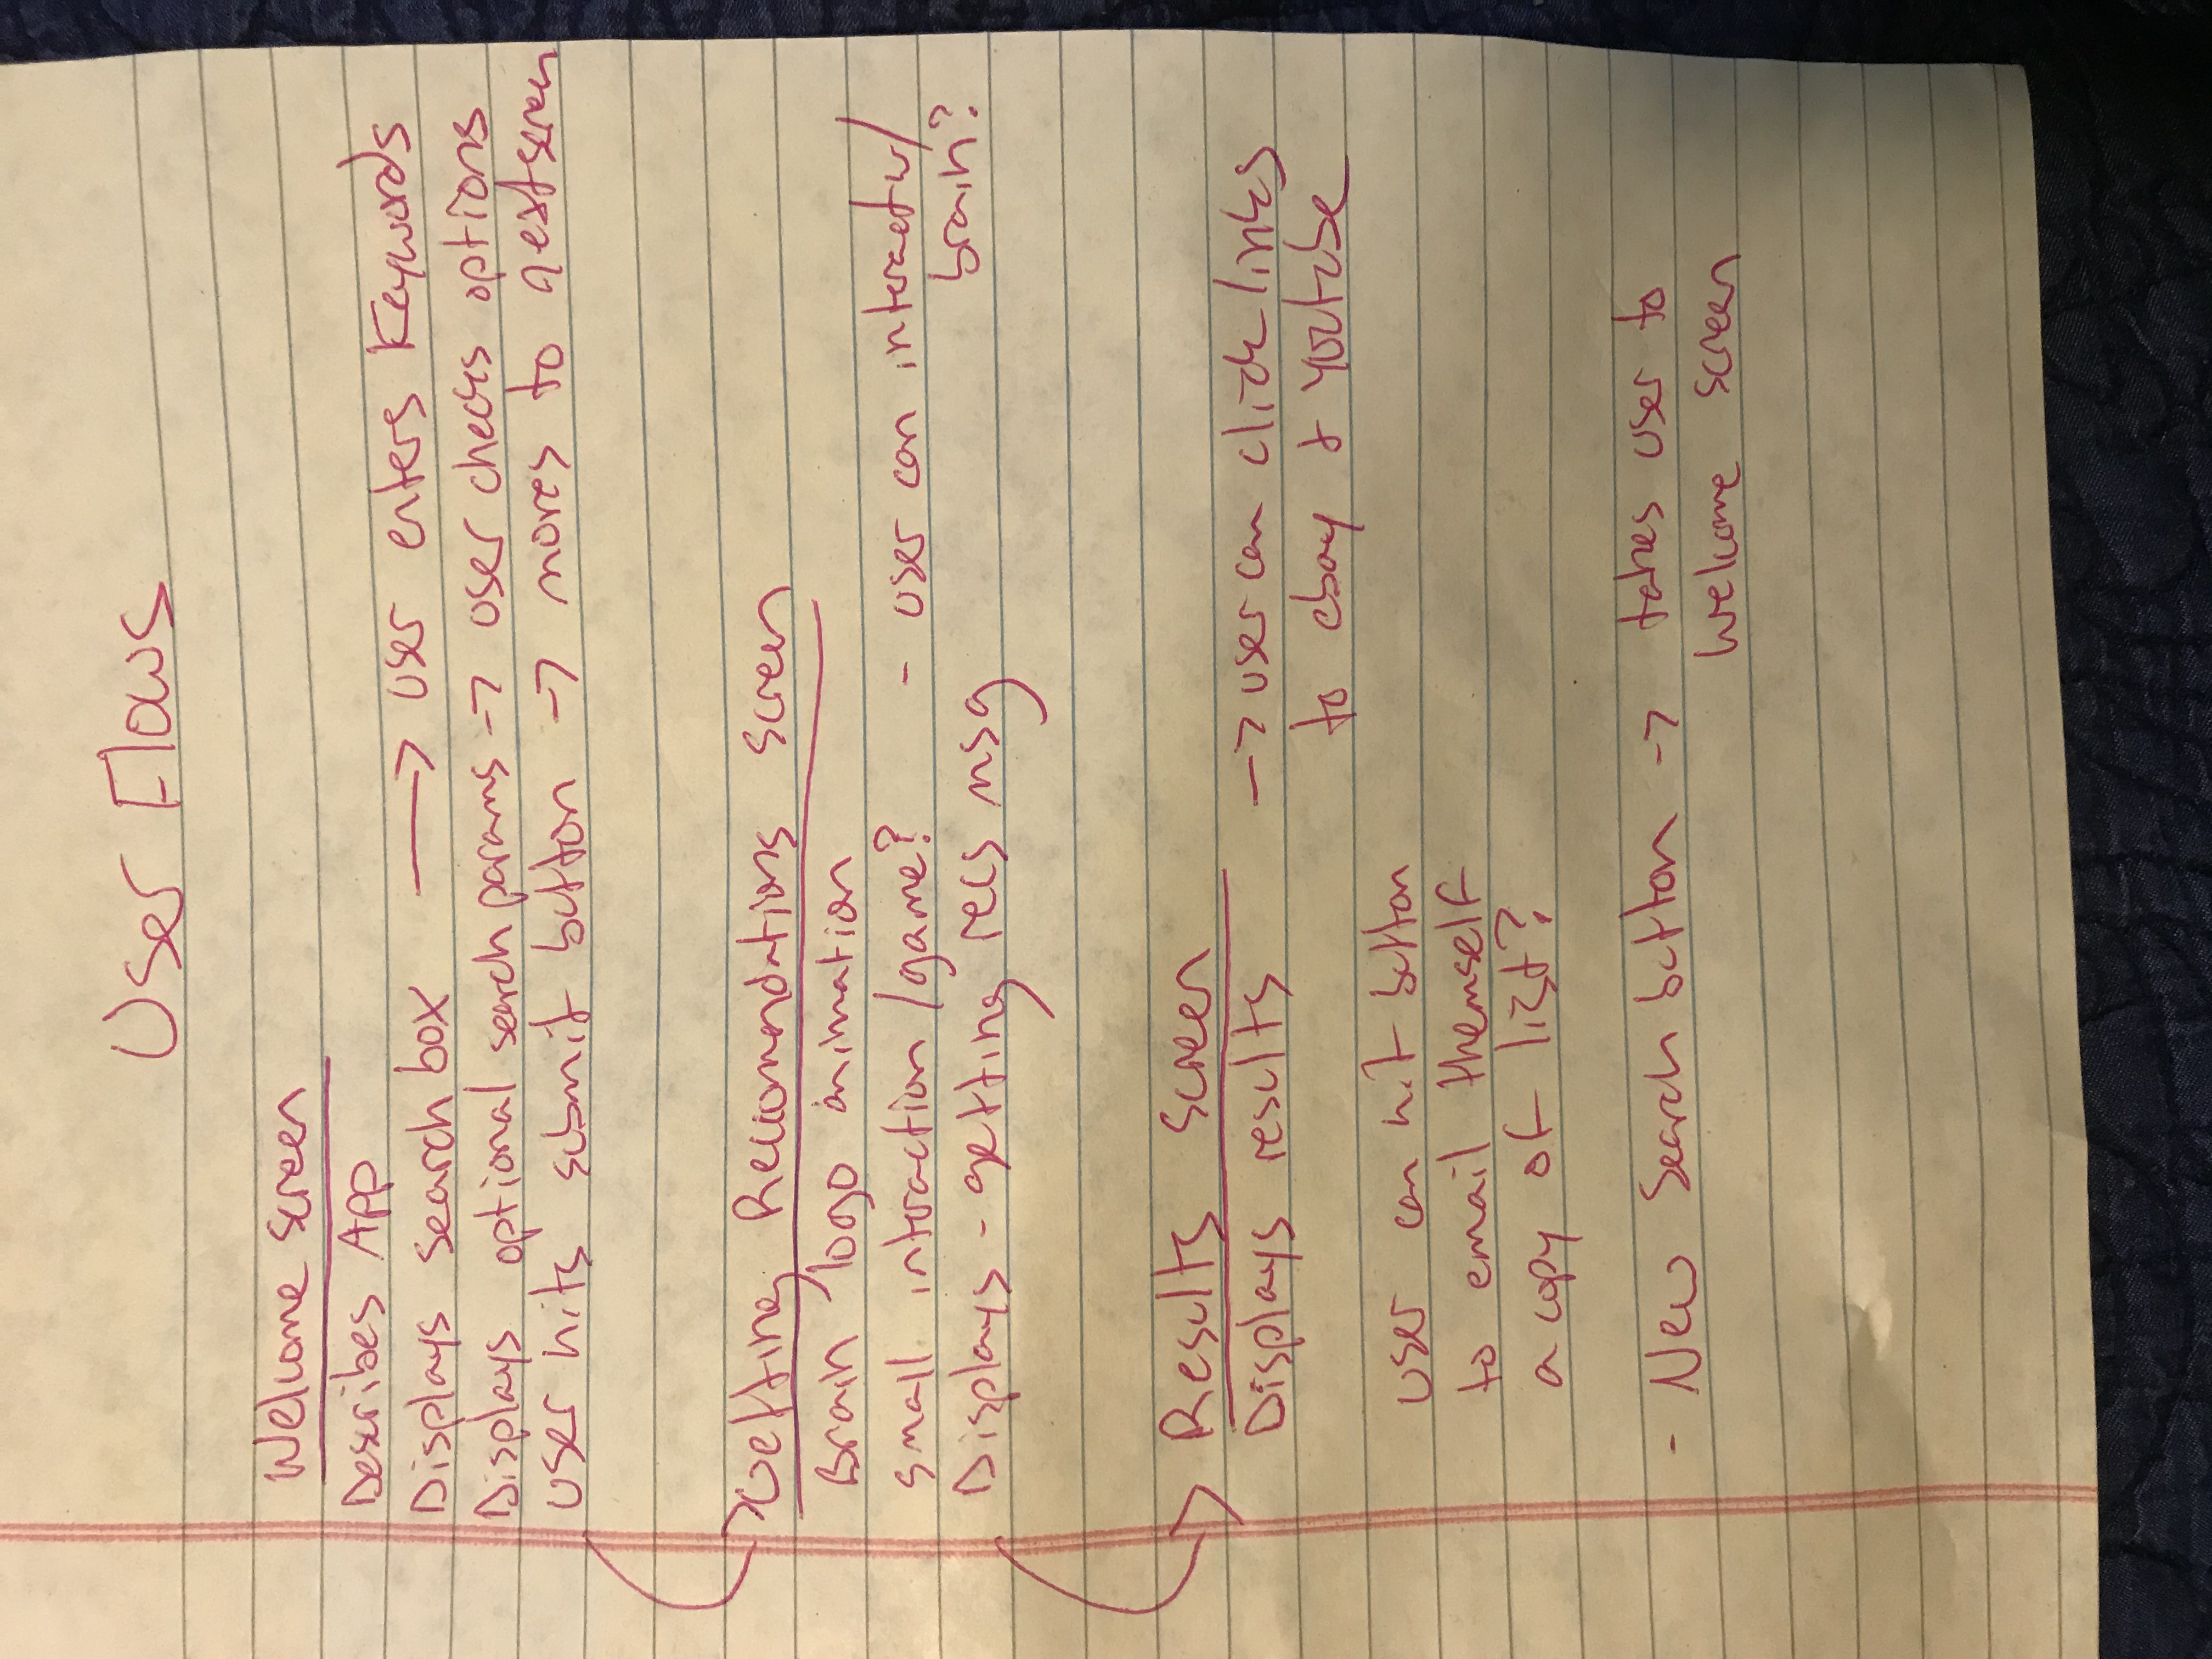 User Flows
Welcome screen
Describes App
Displays search box → user enters Keywords
Displays optional search params → user checks options
user hits submit button → moves to next screen
Getting Reccomendations screen
Brain logo animation
small interaction/game? - user can interact w/
brain?
Displays - getting recs msg
Results screen
Displays results → user can click links
to ebay & Youtube
user can hit button
to email themself
a copy of list?
- New Search button → takes user to
welcome screen